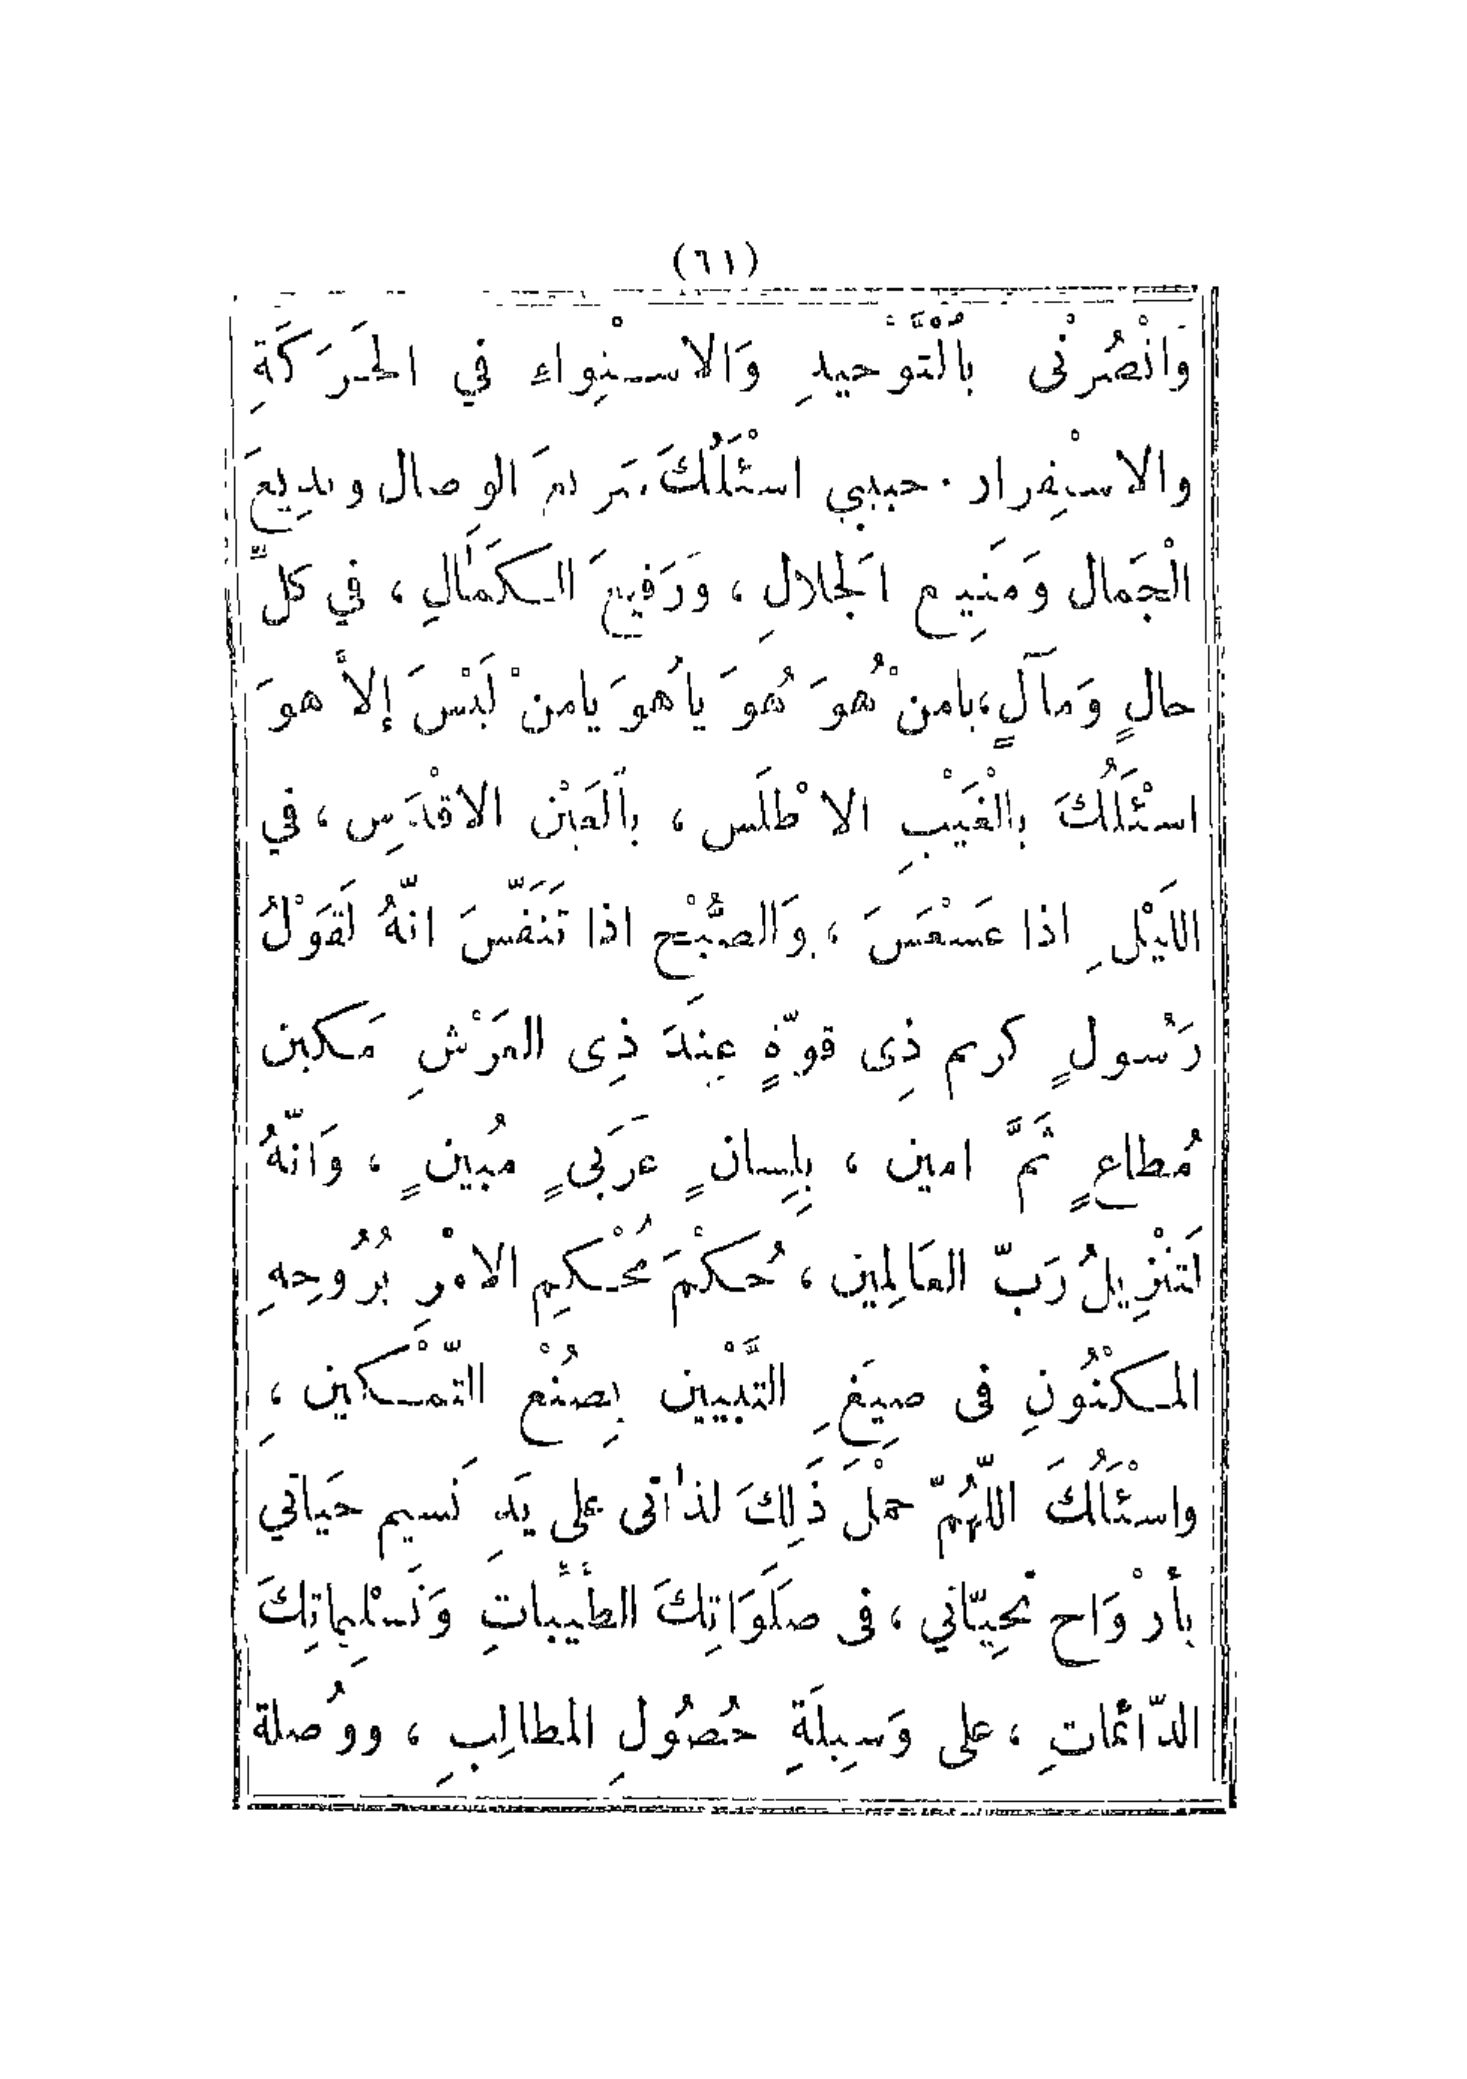 (٦١)
وَانْصُرْنى بالْتَّوْحيدِ وَالاسْتِواءِ في الحَرَكَةِ
والاسْتِقرار . حبيبي اسْئَلُكَ الوصال وبدِيعَ
الْجَمال وَمَنِيع الجَلالِ ، وَرَفيعَ الكَمالِ ، في كلِّ
حالٍ وَمآلٍ ، يامنْ هُوَ هُوَ ياهُوَ يامنْ لَيْسَ إلاَّ هوَ
اسْئَلُكَ بالْغَيْبِ الاطْلَس ، بالَعَيْن الاقْدَسِ ، في
اللَيْلِ اذا عَسْعَسَ ، وَالصُّبْحِ اذا تَنَفّسَ انّهُ لَقَوْلُ
رَسُولٍ كريم ذِى قوّةٍ عِندَ ذِى العَرْشِ مَكين
مُطاعٍ ثَمَّ امين ، بِلِسانٍ عَرَبىٍ مُبينٍ ، وَانّهُ
لَتنْزِيلُ رَبّ العَالمِين ، حُكمْ مُحْكمِ الامْرِ بُرُوحِهِ
المكنُونِ فى صِيَغِ التَّبْيين بِصُنْعِ التّمْكين ،
واسْئَلُكَ اللّهُمّ حمْلَ ذَلِكَ لذاتى على يَدِ نَسيم حَياتي
بأرْوَاح تحِيّاتي ، فى صَلَوَاتِكَ الطَيّباتِ وَتَسْلِيماتِكَ
الدّائماتِ ، على وَسِيلَةِ حُصُولِ المطالِبِ ، ووُصلة